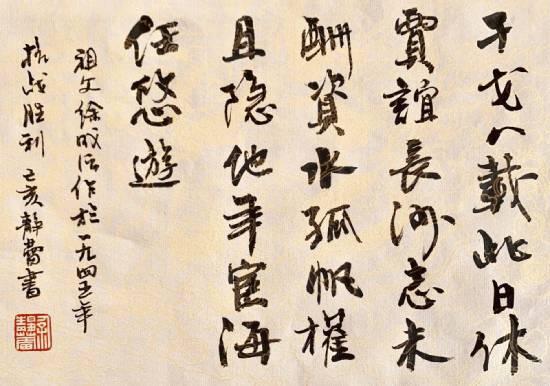 干戈八載此日休
賈誼長沙忘未
酬資水孤帆權
且隐他年宦海
任悠遊
祖父徐作於一九四五年
抗战胜利 己亥静蕾書